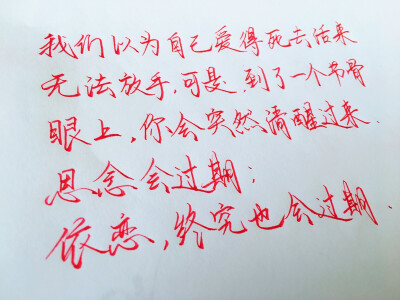 我们以为自己爱得死去活来
无法放手,可是,到了一个节骨
眼上,你会突然清醒过来.
思念会过期;
依恋,终究也会过期.